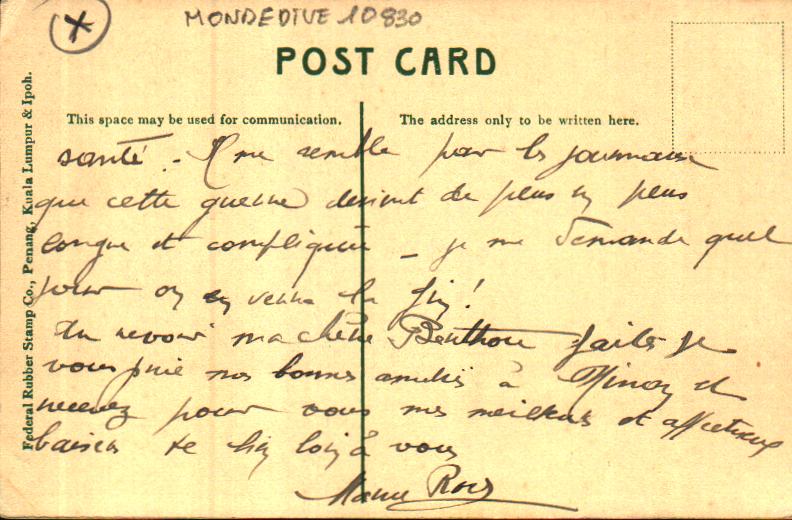 MONDEDIVE 10830
POST CARD
This space may be used for communication.
The address only to be written here.
Federal Rubber Stamp Co., Penang, Kuala Lumpur & Ipoh.
santé. Il me semble par les journaux
que cette guerre devient de plus en plus
longue et compliquée – je me demande quel
jour on en verra la fin!
Au revoir ma chère Berthou faites je
vous prie nos bonnes amitiés à et
recevez pour vous mes meilleurs et affectueux
baisers de bien loin à vous